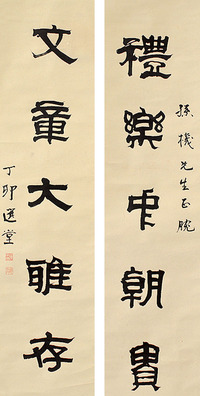 孫機先生正腕
禮樂中朝貴
文章大雅存
丁卯選堂